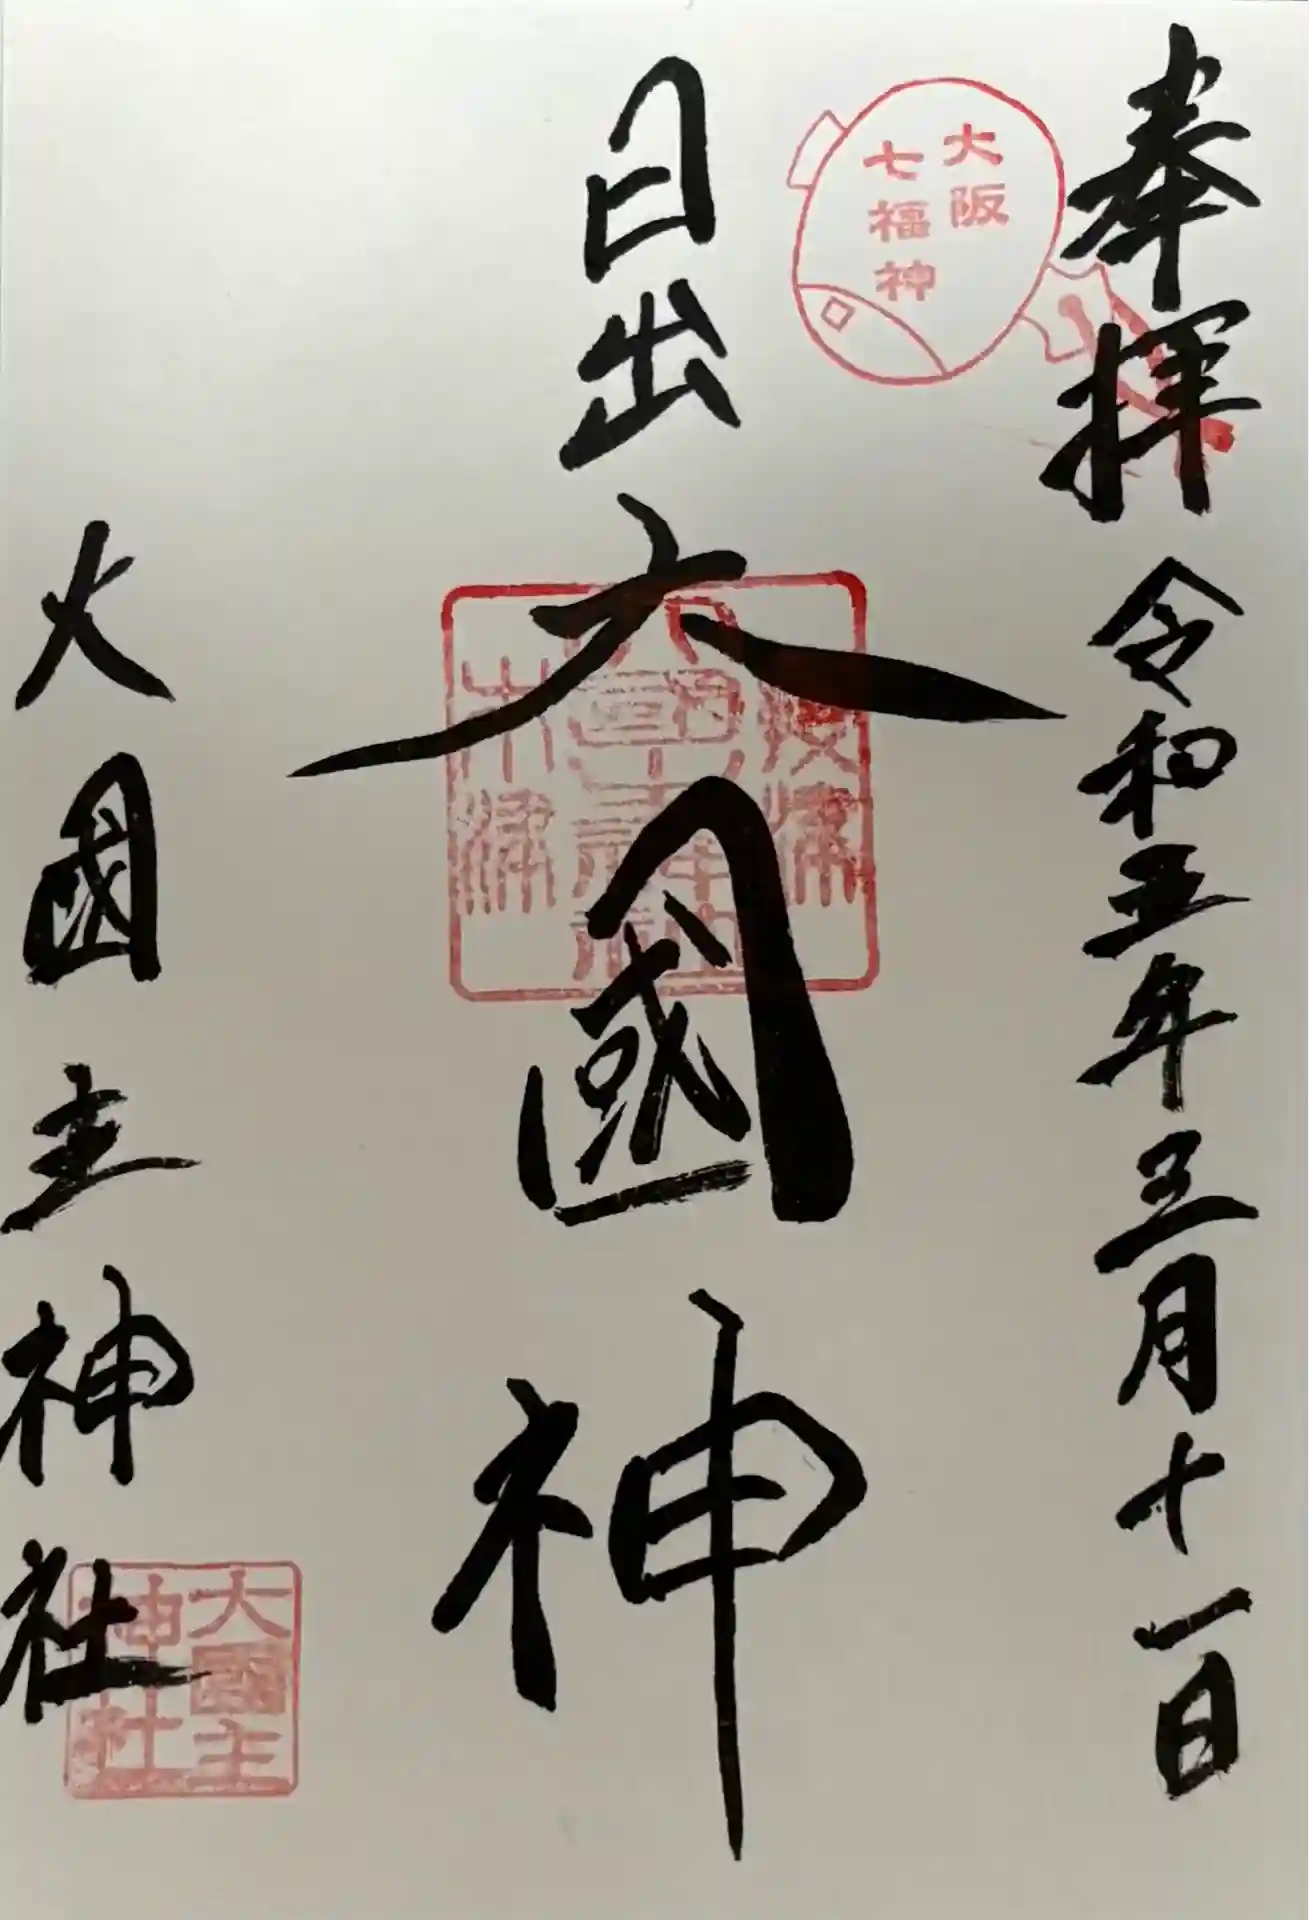 奉拝 令和五年三月十一日
大阪
七福神
日出大國神
大国主神社
大國主
神社
木津